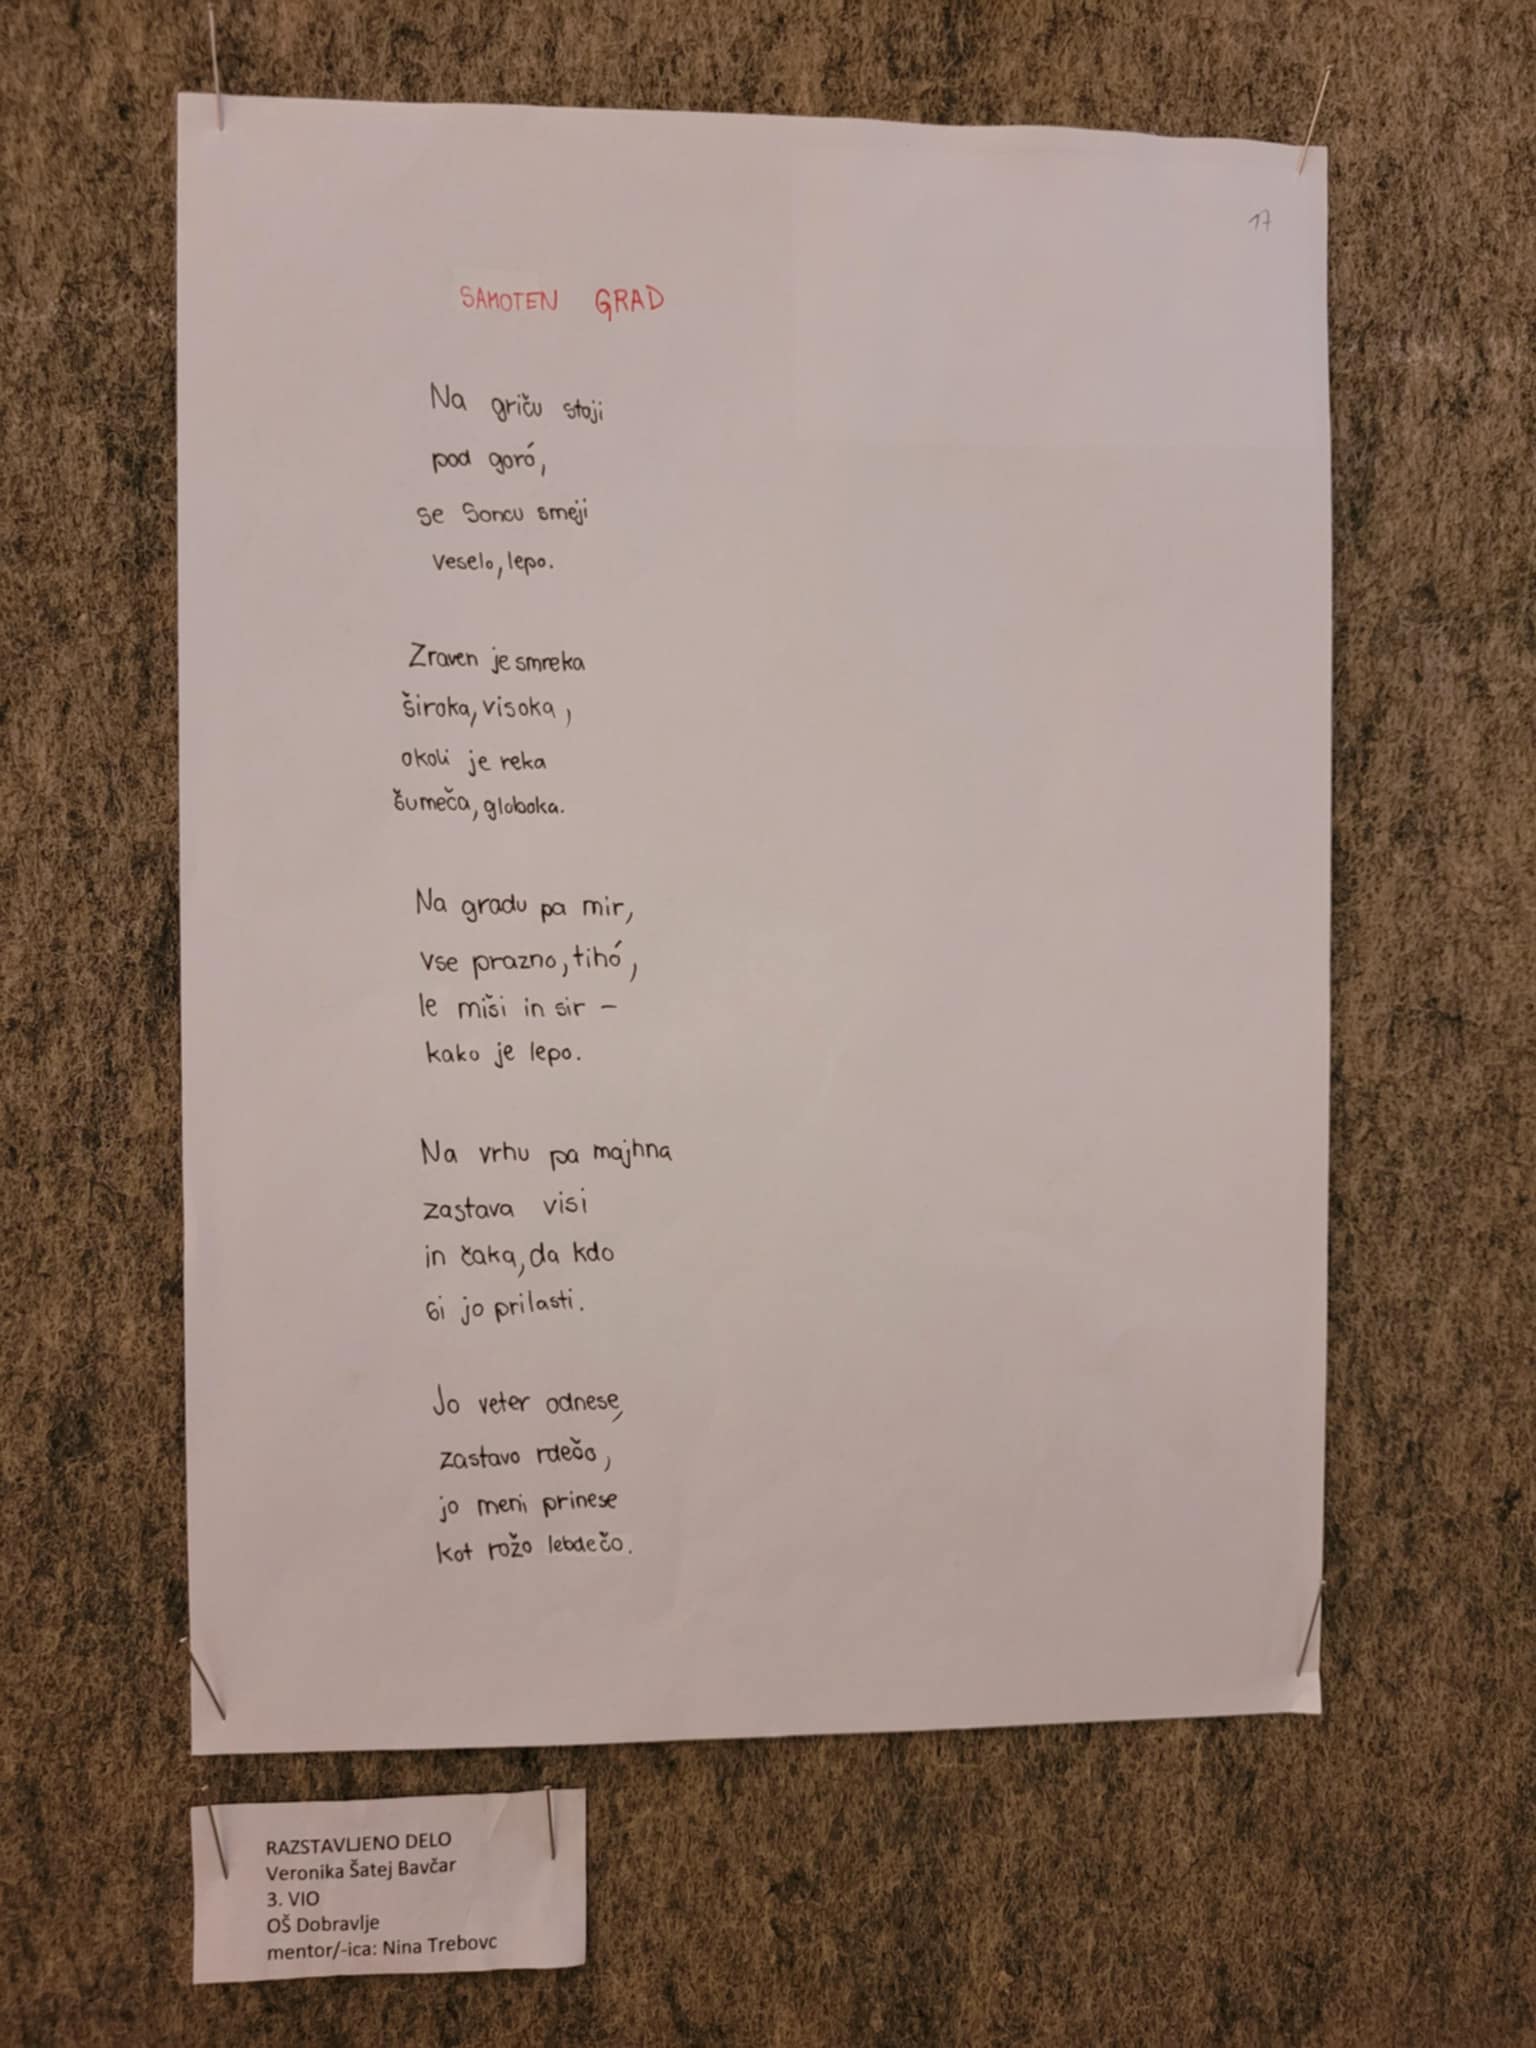 17
SAMOTEN GRAD
Na griču stoji
pod goró,
se Soncu smeji
veselo, lepo.
Zraven je smreka
široka, visoka,
okoli je reka
šumeča, globoka.
Na gradu pa mir,
vse prazno, tihó,
le miši in sir –
kako je lepo.
Na vrhu pa majhna
zastava visi
in čaka, da kdo
si jo prilasti.
Jo veter odnese,
zastavo rdečo,
jo meni prinese
kot rožo lebdečo.
RAZSTAVLJENO DELO
Veronika Šatej Bavčar
3. VIO
OŠ Dobravlje
mentor/-ica: Nina Trebovc